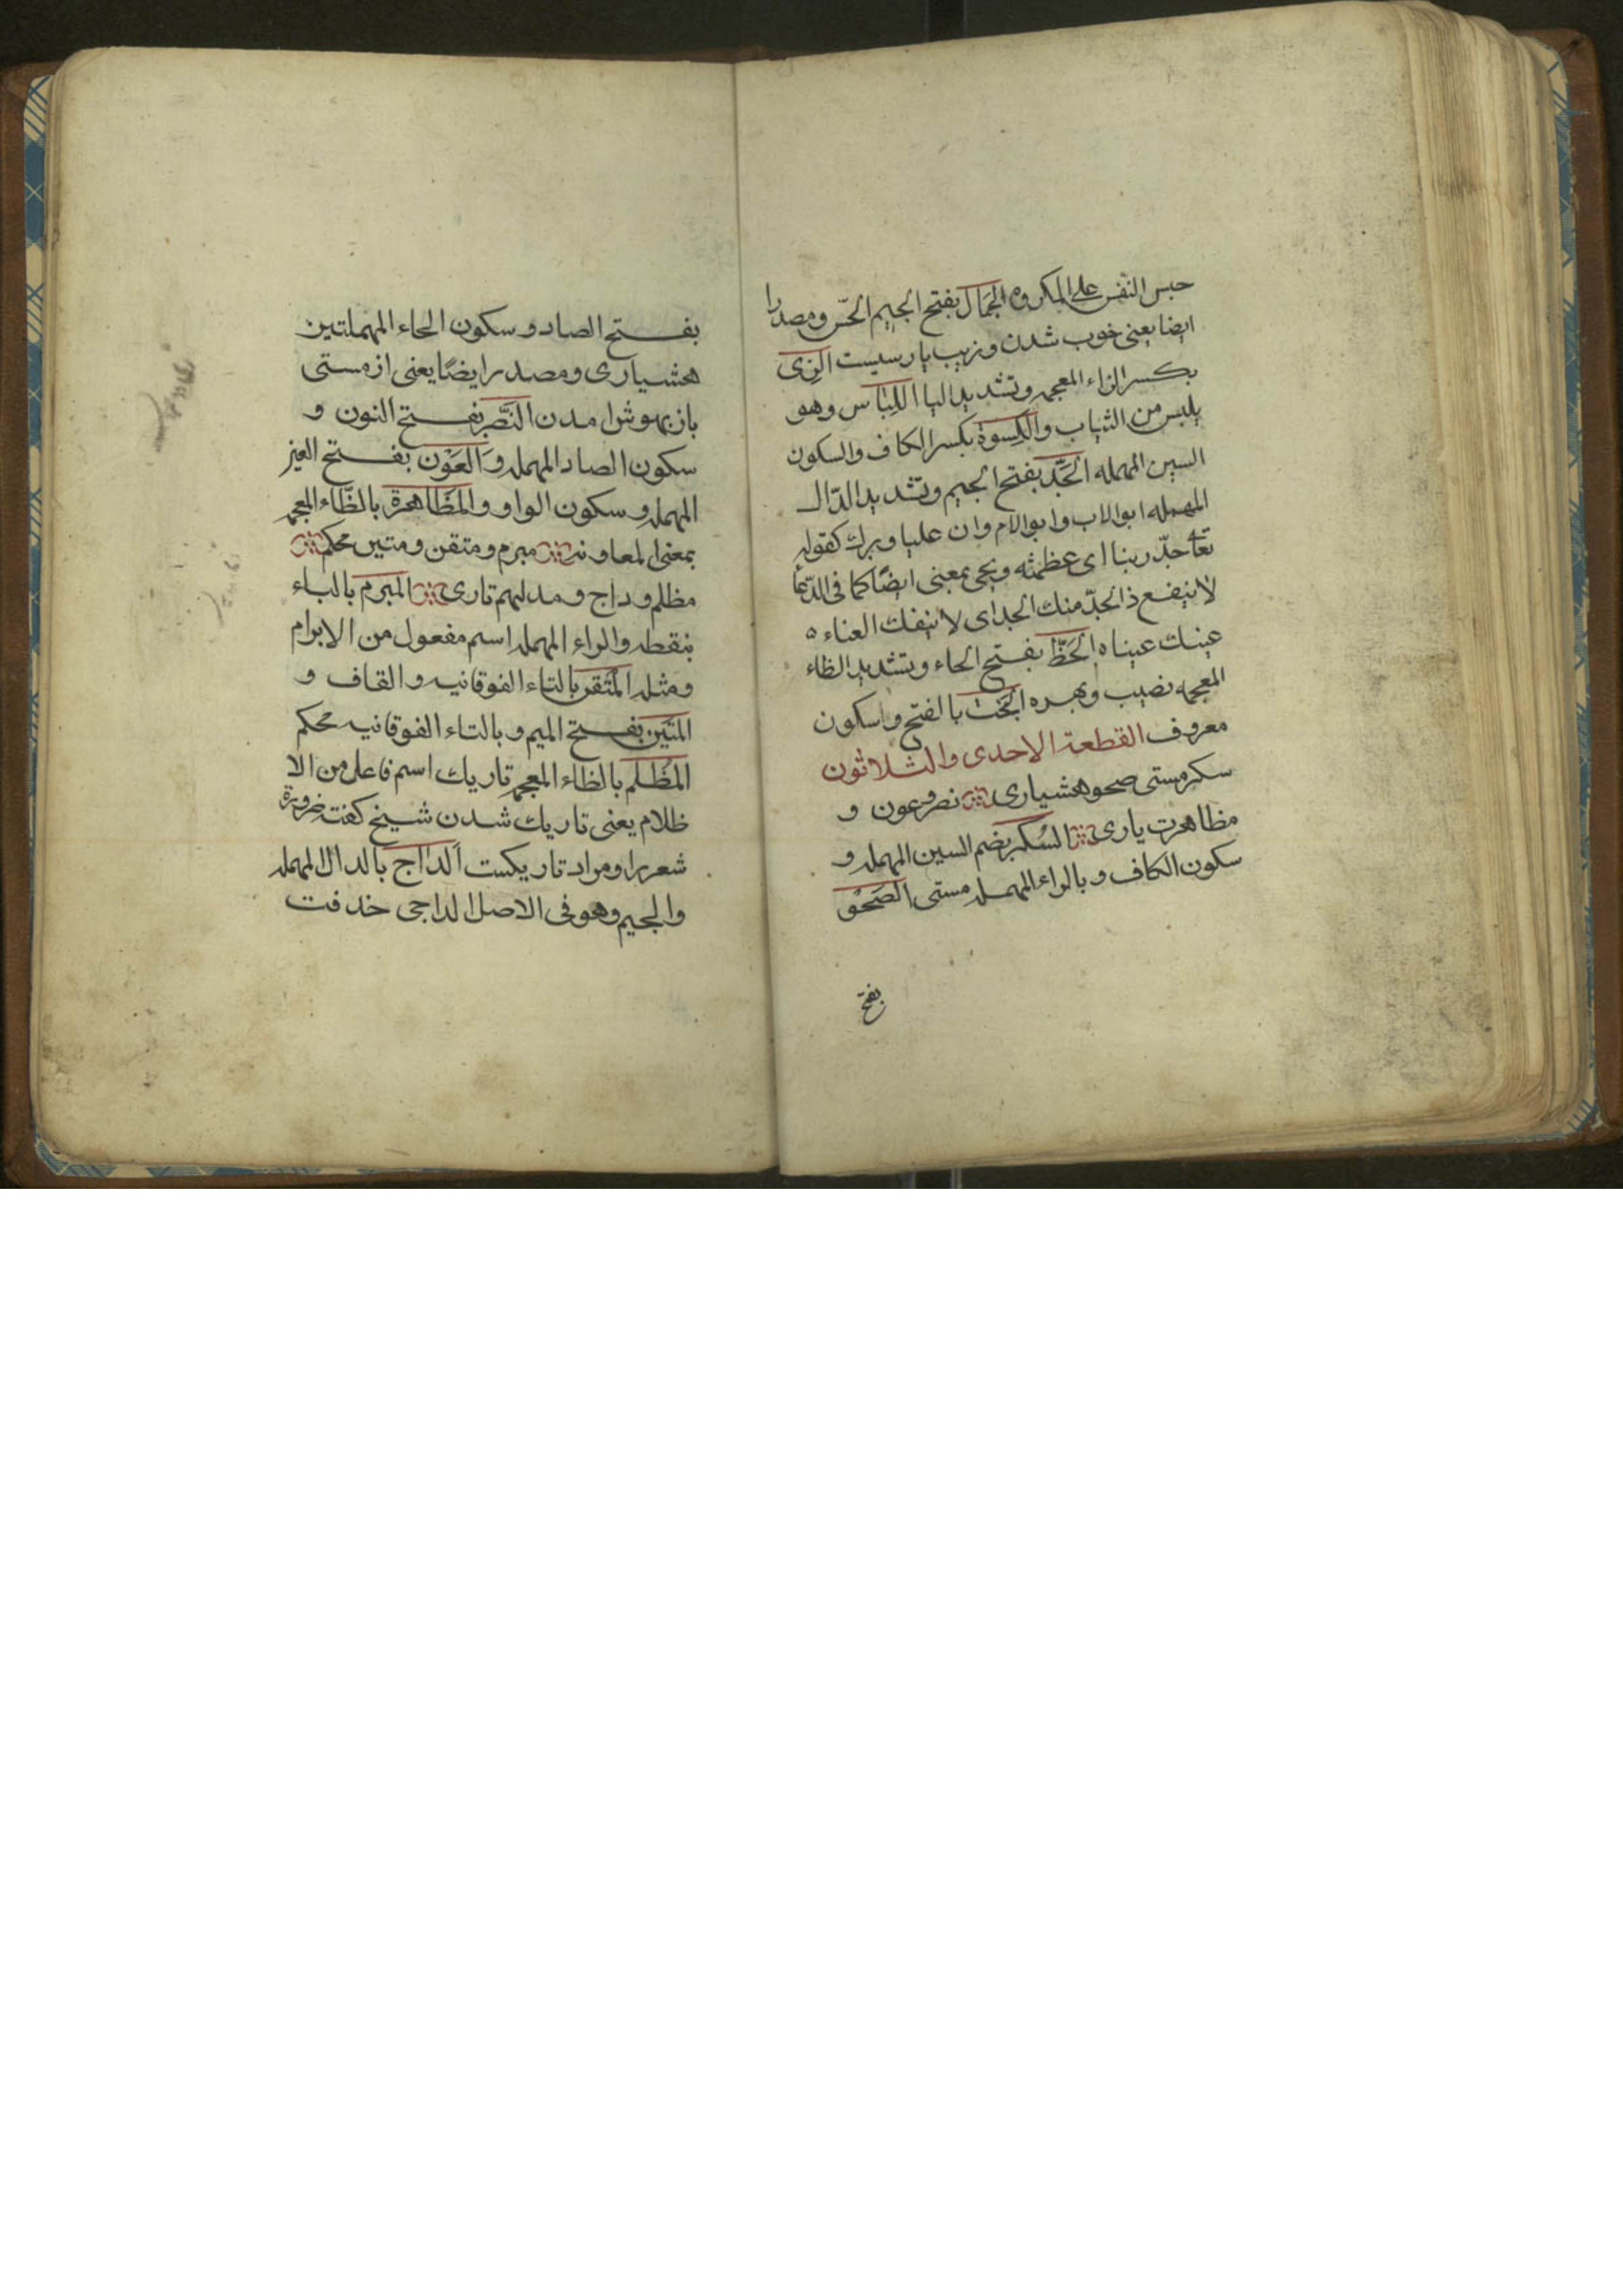 حبس النفس على المكروه الجمال بفتح الجيم الحسن ومصدرا
ايضا يعنى خوب شدن وزيب پارسيست الزى
بكسر الزاء المعجمه وتشديد اليا اللباس وهو
يلبس من الثياب والكسوة بكسر الكاف والسكون
السين المهمله الجد بفتح الجيم وتشديد الدال
المهمله ابو الاب وابو الام وان عليا وبزرك كقوله
تعا جد ربنا اى عظمته ويجى بمعنى ايضا كما فى الدعا
لا ينفع ذا لجد منك الجد اى لا ينفك الغناء ه
عينك عيناه الحظ بفتح الحاء وتشديد الظاء
المعجمه نصيب وبهره البخت بالفتح واسكون
معروف القطعة الاحدى والثلاثون
سكر مستى صحو هشيارى نصر وعون و
مظاهرت يارى السكر بضم السين المهمله و
سكون الكاف وبالراء المهمله مستى الصحو
بفتح
بفتح الصاد وسكون الحاء المهملتين
هشيارى ومصدر ايضا يعنى از مستى
باز بهوش امدن النصر بفتح النون و
سكون الصاد المهمله والعون بفتح العين
المهمله وسكون الواو والمظاهرة بالظاء المعجمه
بمعنى المعاونه مبرم ومتقن ومتين محكم
مظلم وداج ومدلهم تارى المبرم بالباء
بنقطه والراء المهمله اسم مفعول من الابرام
ومثله المتقن بالتاء الفوقانيه والقاف و
المتين بفتح الميم وبالتاء الفوقانيه محكم
المظلم بالظاء المعجمه تاريك اسم فاعل من الا
ظلام يعنى تاريك شدن شيخ كفته ضرورة
شعر را ومراد تاريكست الداج بالدال المهمله
والجيم وهو فى الاصل الداجى خدفت